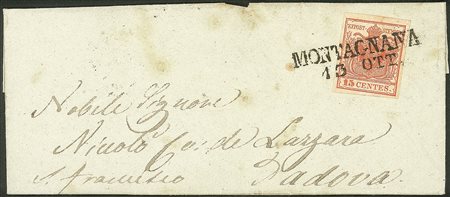 MONTAGNANA
13 OTT.
15 CENTES.
Nobile Signore
Nicolò Co: de Lazzara
S. Francesco Padova